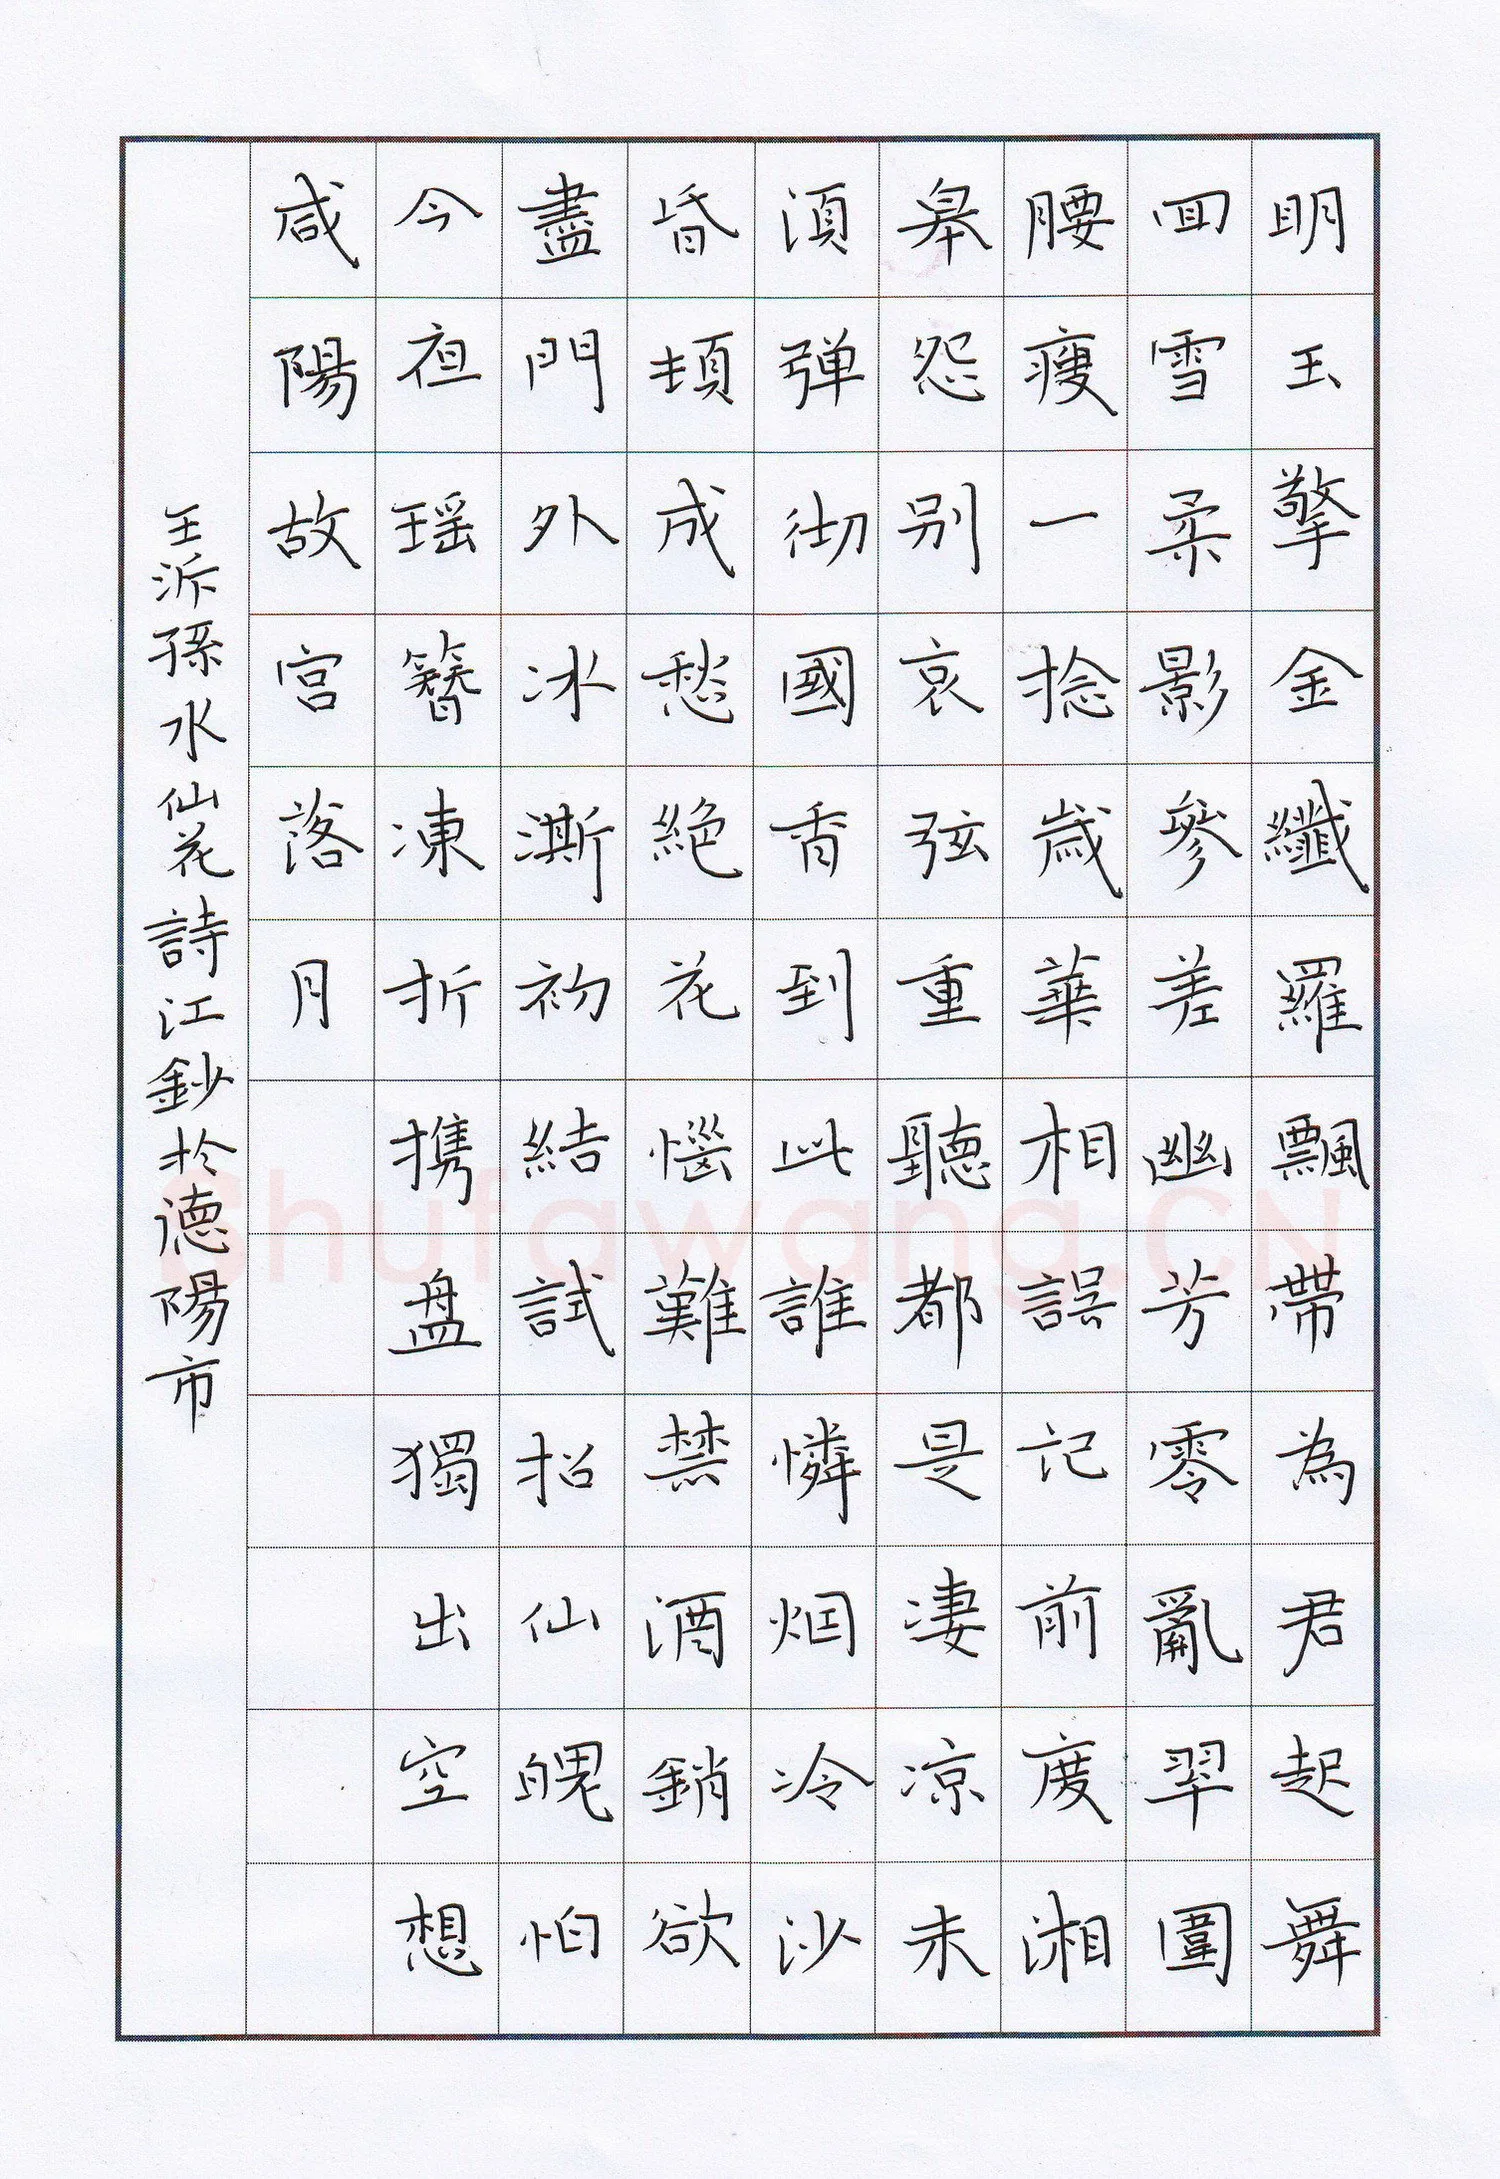 明玉擎金纖羅飄帶為君起舞
回雪柔影參差幽芳零亂翠圍
腰瘦一捻歲華相誤記前度湘
皋怨别哀弦重聽都是淒凉未
須弹彻國香到此誰憐烟冷沙
昏頓成愁絕花惱難禁酒銷欲
盡門外冰澌初結試招仙魄怕
今夜瑶簪凍折携盘獨出空想
咸陽故宫落月
王泝孫水仙花詩江鈔於德陽市
Shufawang.CN